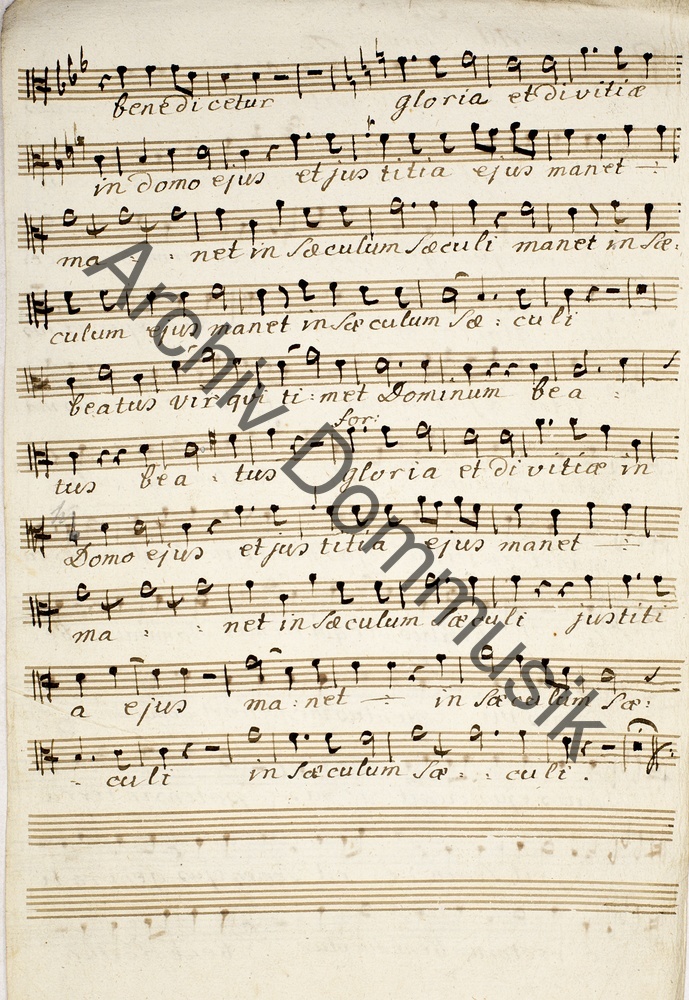 benedicetur gloria et divitiæ
in domo ejus et justitia ejus manet
ma - - net in sæculum sæculi manet in sæ:
culum ejus manet in sæculum sæ - : culi
beatus vir qui ti: met Dominum be a :
for:
tus be a : tus gloria et divitiæ in
Domo ejus et justitia ejus manet
ma - : net in sæculum sæculi justiti
a ejus ma: net in sæculum sæ:
- culi in sæculum sæ - : culi.
Archiv Dommusik